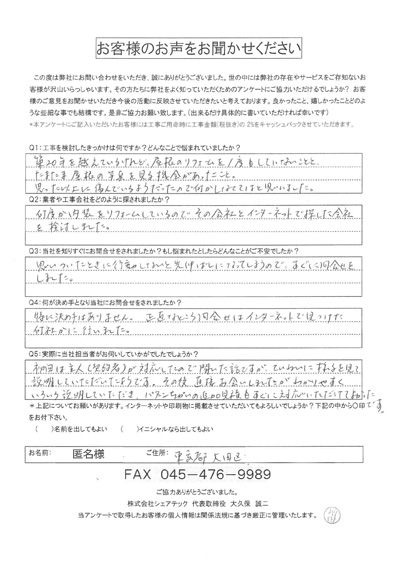 お客様のお声をお聞かせください
この度は弊社にお問い合わせをいただき、誠にありがとうございました。世の中には弊社の存在やサービスをご存知ないお
客様が沢山いらっしゃいます。その方たちに弊社をよく知っていただくためのアンケートにご協力いただけるでしょうか？ お客
様のご意見をお聞かせいただき今後の活動に反映させていただきたいと考えております。良かったこと、嬉しかったことどのよ
うな些細な事でも結構です。是非ご協力お願い致します。（出来るだけ具体的に書いていただければ幸いです）
*本アンケートにご記入いただいたお客様には工事ご用命時に工事金額(税抜き)の2%をキャッシュバックさせていただきます。
Q1:工事を検討したきっかけは何ですか？どんなことで悩まれていましたか？
築20年を越えているけれど、屋根のリフォームを1度もしていないことと、
たまたま屋根の写真を見る機会があったこと。
思った以上に傷んでいるようだったので何かしなくてはと思いました。
Q2:業者や工事会社をどのように探されましたか？
何度か内装をリフォームしているのでその会社とインターネットで探した会社
を検討しました。
Q3:当社を知りすぐにお問合せをされましたか？もし悩まれたとしたらどんなことがご不安でしたか？
思いついたときに行動しないと先伸ばしになってしまうので、すぐに問合せを
しました。
Q4:何が決め手となり当社にお問合せをされましたか？
特に決め手はありません。正直なところ問合せはインターネットで見つけた
何社かに行いました。
Q5:実際に当社担当者がお伺いしていかがでしたでしょうか？
初回は主人(契約者)が対応したので聞いた話ですが、ていねいに様子を見て
説明していただいたようです。その後、直接お会いしましたがわかりやすく
いろいろ説明していただき、
＊上記についてお願いがあります。インターネットや印刷物に掲載させていただいてもよろしいでしょうか？下記の中から〇印で
をお付下さい。
（　）名前を出してもよい　（　）イニシャルなら出してもよい
お名前: 匿名様 ご住所: 東京都大田区
FAX 045-476-9989
ご協力ありがとうございました。
株式会社シェアテック 代表取締役 大久保 誠二
当アンケートで取得したお客様の個人情報は関係法規に基づき厳正に管理いたします。